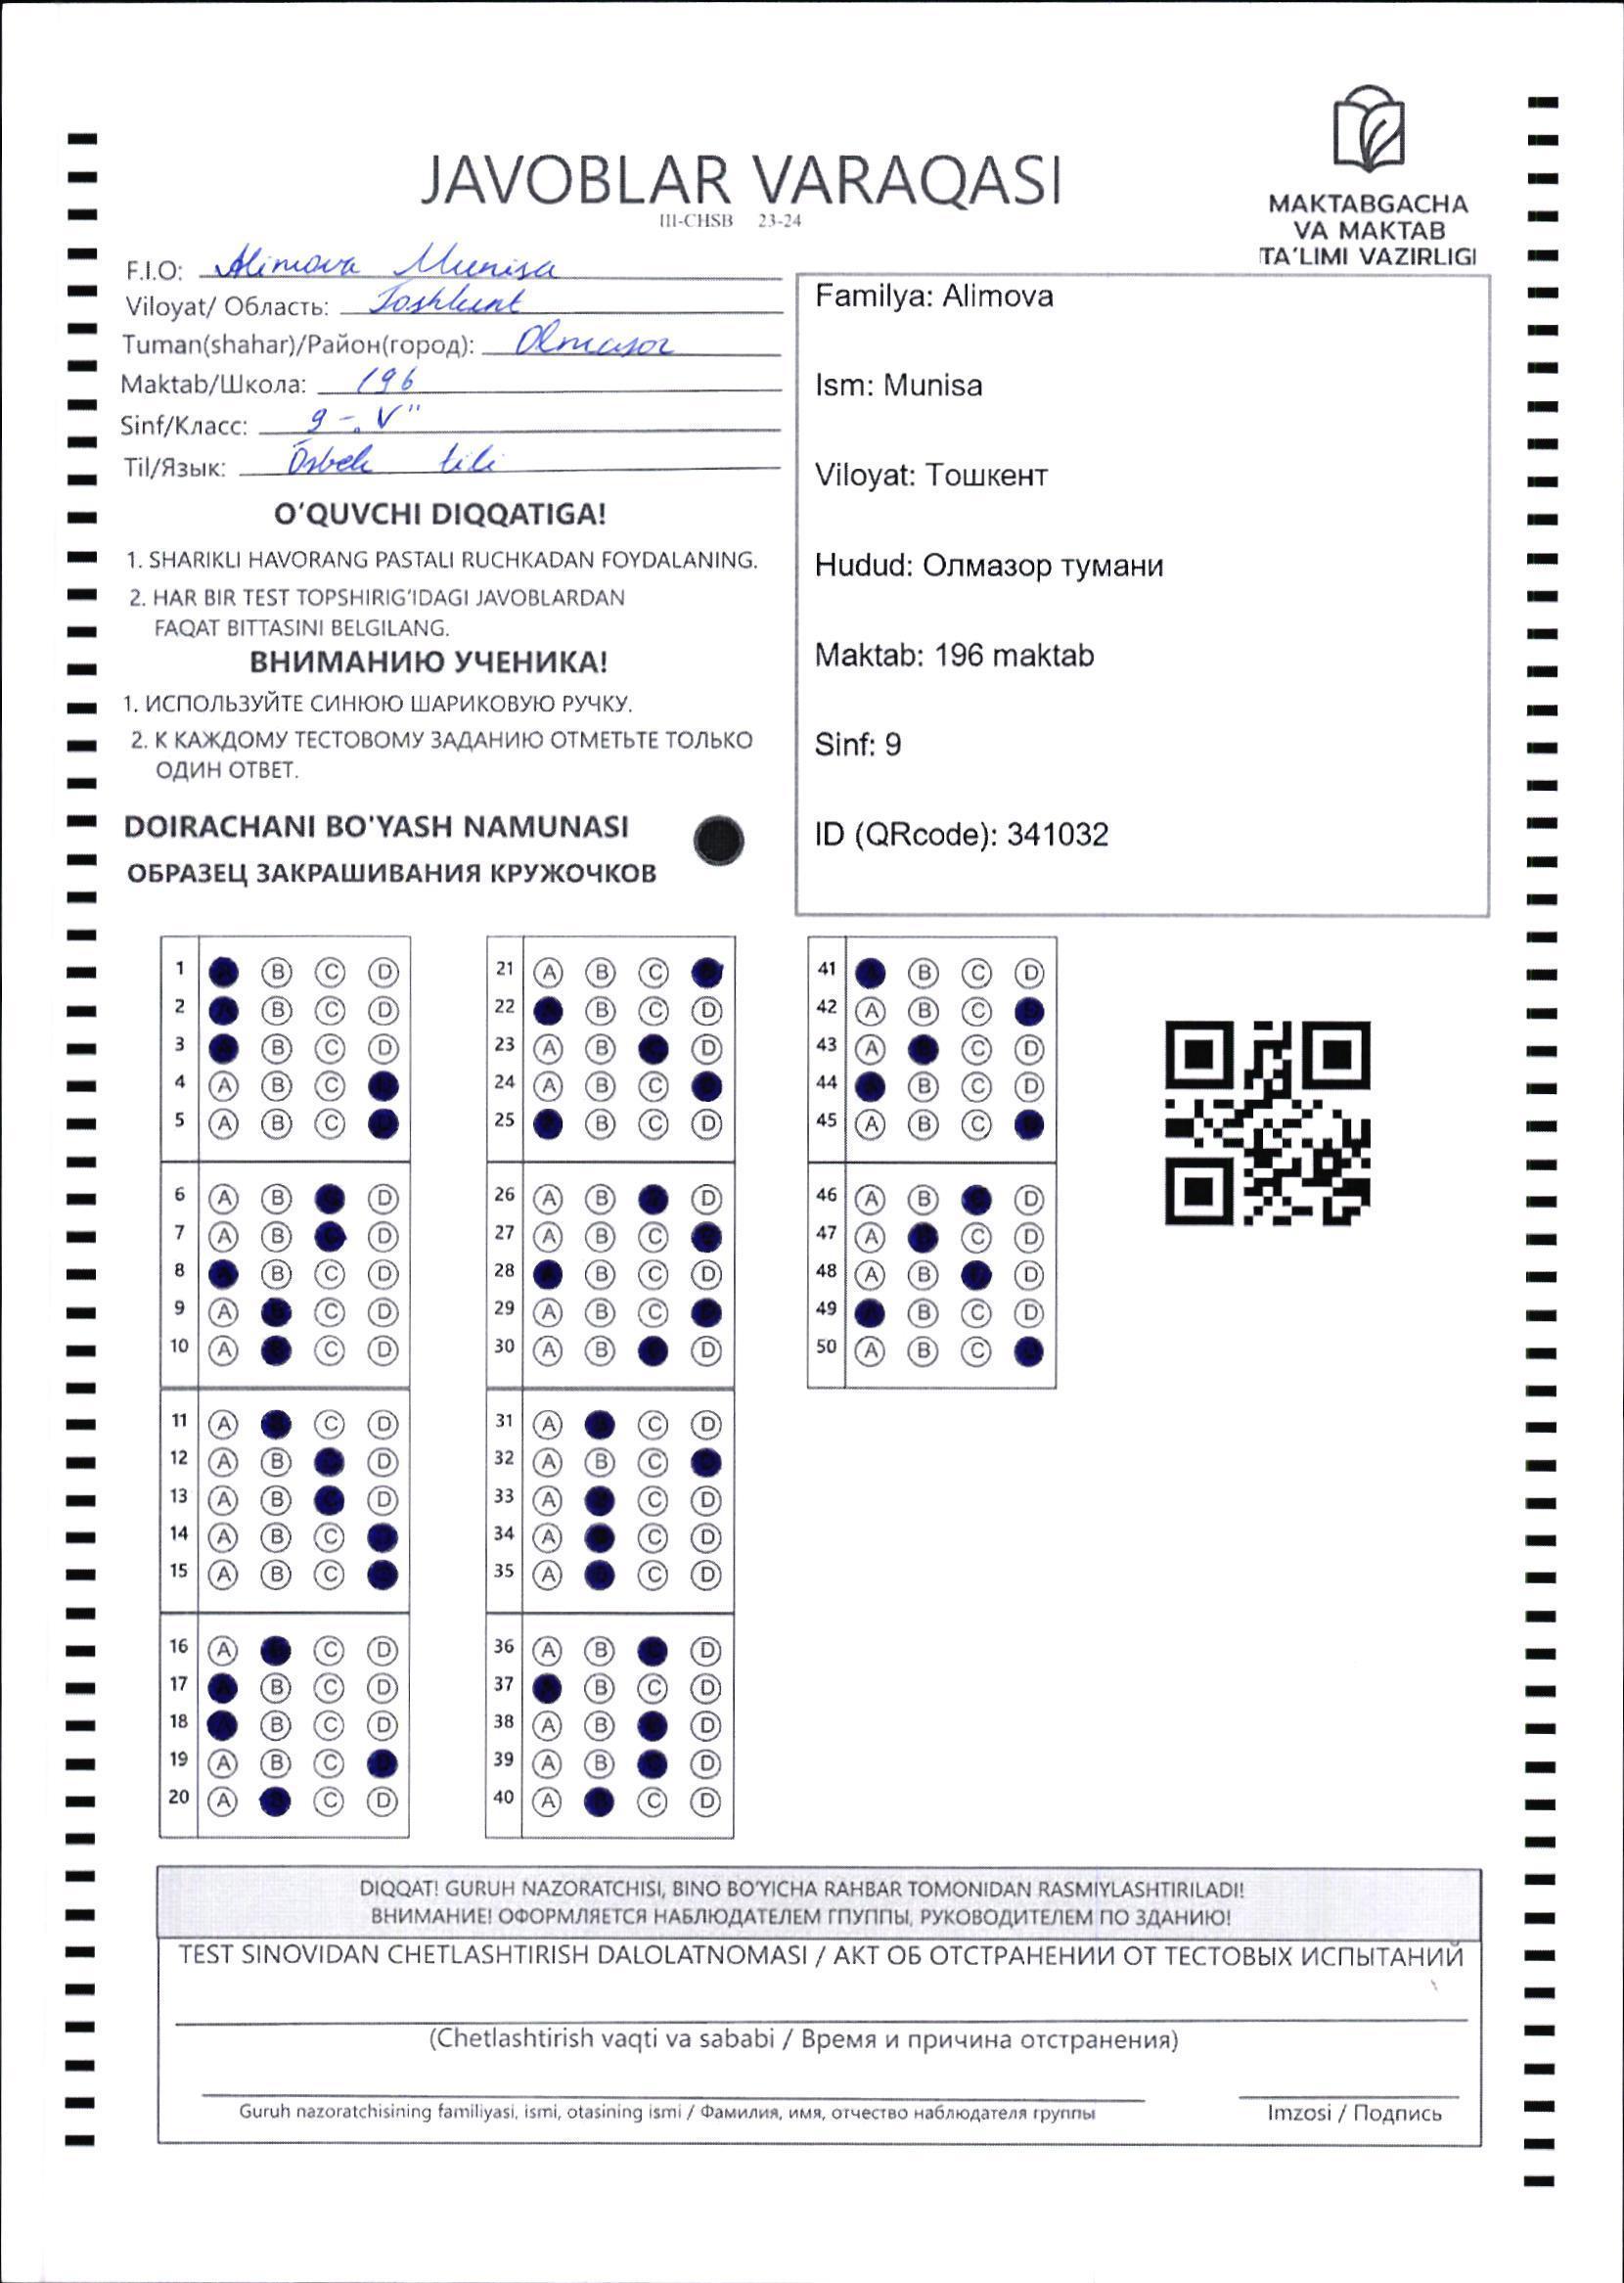 JAVOBLAR VARAQASI
III-CHSB 23-24
MAKTABGACHA
VA MAKTAB
TA'LIMI VAZIRLIGI
F.I.O: Alimova Munisa
Viloyat/ Область: Toshkent
Tuman(shahar)/Район(город): Olmazor
Maktab/Школа: 196
Sinf/Класс: 9-„V"
Til/Язык: Özbek tili
O'QUVCHI DIQQATIGA!
1. SHARIKLI HAVORANG PASTALI RUCHKADAN FOYDALANING.
2. HAR BIR TEST TOPSHIRIG'IDAGI JAVOBLARDAN
FAQAT BITTASINI BELGILANG.
ВНИМАНИЮ УЧЕНИКА!
1. ИСПОЛЬЗУЙТЕ СИНЮЮ ШАРИКОВУЮ РУЧКУ.
2. К КАЖДОМУ ТЕСТОВОМУ ЗАДАНИЮ ОТМЕТЬТЕ ТОЛЬКО
ОДИН ОТВЕТ.
DOIRACHANI BO'YASH NAMUNASI
ОБРАЗЕЦ ЗАКРАШИВАНИЯ КРУЖОЧКОВ
Familya: Alimova
Ism: Munisa
Viloyat: Тошкент
Hudud: Олмазор тумани
Maktab: 196 maktab
Sinf: 9
ID (QRcode): 341032
1 B C D
2 B C D
3 B C D
4 A B C
5 A B C
6 A B D
7 A B D
8 B C D
9 A C D
10 A C D
11 A C D
12 A B D
13 A B D
14 A B C
15 A B C
16 A C D
17 B C D
18 B C D
19 A B C
20 A C D
21 A B C
22 B C D
23 A B D
24 A B C
25 B C D
26 A B D
27 A B C
28 B C D
29 A B C
30 A B D
31 A C D
32 A B C
33 A C D
34 A C D
35 A C D
36 A B D
37 B C D
38 A B D
39 A B D
40 A C D
41 B C D
42 A B C
43 A C D
44 B C D
45 A B C
46 A B D
47 A C D
48 A B D
49 B C D
50 A B C
DIQQAT! GURUH NAZORATCHISI, BINO BO'YICHA RAHBAR TOMONIDAN RASMIYLASHTIRILADI!
ВНИМАНИЕ! ОФОРМЛЯЕТСЯ НАБЛЮДАТЕЛЕМ ГПУППЫ, РУКОВОДИТЕЛЕМ ПО ЗДАНИЮ!
TEST SINOVIDAN CHETLASHTIRISH DALOLATNOMASI / АКТ ОБ ОТСТРАНЕНИИ ОТ ТЕСТОВЫХ ИСПЫТАНИЙ
(Chetlashtirish vaqti va sababi / Время и причина отстранения)
Guruh nazoratchisining familiyasi, ismi, otasining ismi / Фамилия, имя, отчество наблюдателя группы
Imzosi / Подпись